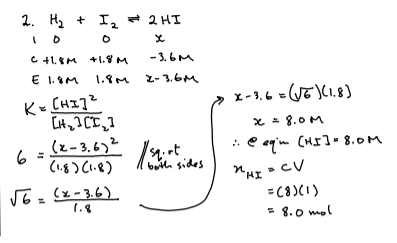 2. H₂ + I₂ ⇌ 2HI
I 0 0 x
C +1.8M +1.8M -3.6M
E 1.8M 1.8M x-3.6M
K = [HI]² / [H₂][I₂]
6 = (x-3.6)² / (1.8)(1.8) // sq. rt both sides
√6 = (x-3.6) / 1.8
x-3.6 = (√6)(1.8)
x = 8.0M
∴ @ eqm [HI] = 8.0M
n_HI = CV
= (8)(1)
= 8.0 mol